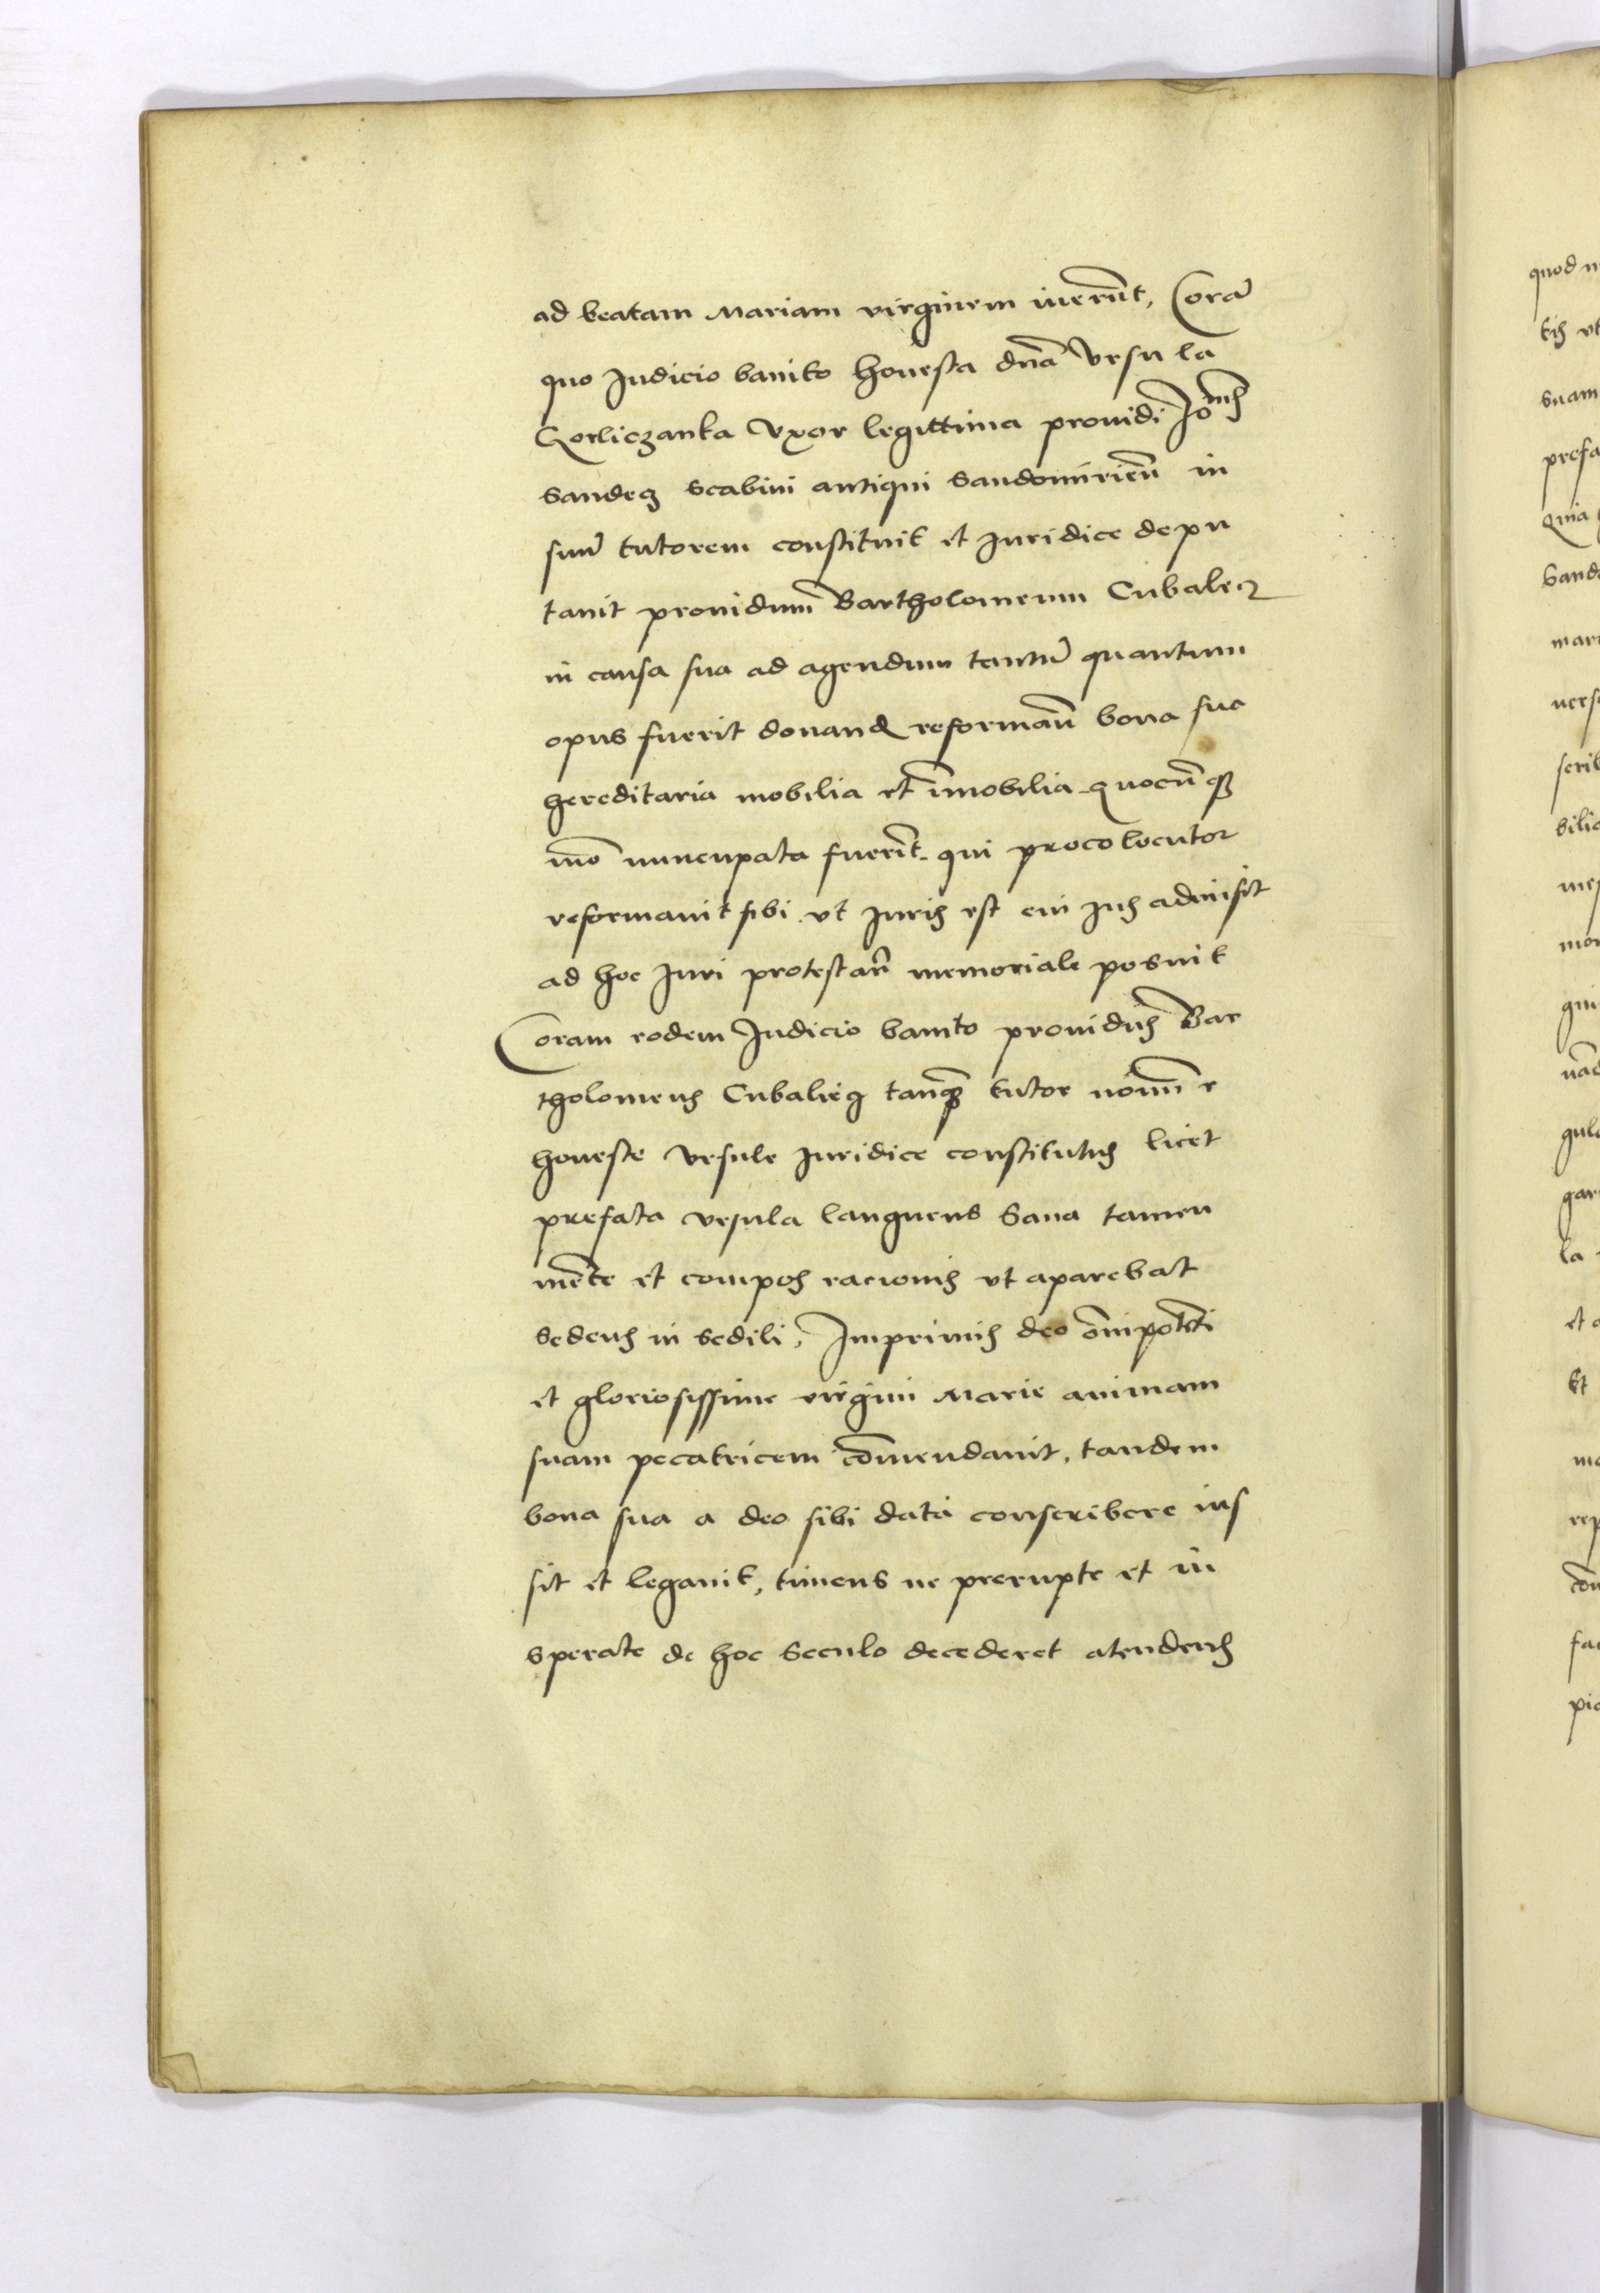 ad beatam Mariam virginem inerūt, Corā
quo Judicio banito honesta dn̄a Vrsula
Gorliczanka Vxor legittima prouidi Joīs
Sandecz Scabini antiqui Sandomirieñ in
suū tutorem constituit et Juridice depu
tauit prouidum Bartholomeum Cubalecz
in causa sua ad agendum tantū quantum
opus fuerit donand reformañ bona sua
hereditaria mobilia et īmobilia quocūqꝫ
mō nuncupata fuerīt qui procolocutor
reformauit sibi vt Juris est cui Jus admisit
ad hoc Juri protestañ memoriale posuit
Coram eodem Judicio banito prouidus Bar
tholomeus Cubaliecz tanqꝫ tutor noīne
honeste Vrsule Juridice constitutus licet
prefata Vrsula languens Sana tamen
mēte et compos racionis vt aparebat
Sedens in Sedili, Imprimis deo om̄ipotēti
et gloriosissime virgini Marie animam
suam pecatricem cōmendauit, tandem
bona sua a deo sibi data conscribere ius
sit et legauit, timens ne prerupte et in
sperate de hoc Seculo decederet atendens
quod
suam
prefa
Quia
Sand
mar